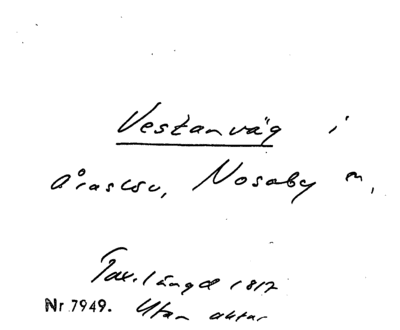 Vestanväg i
Nosaby sn,
Tax.längd 1817
Nr 7949. Utan aktar